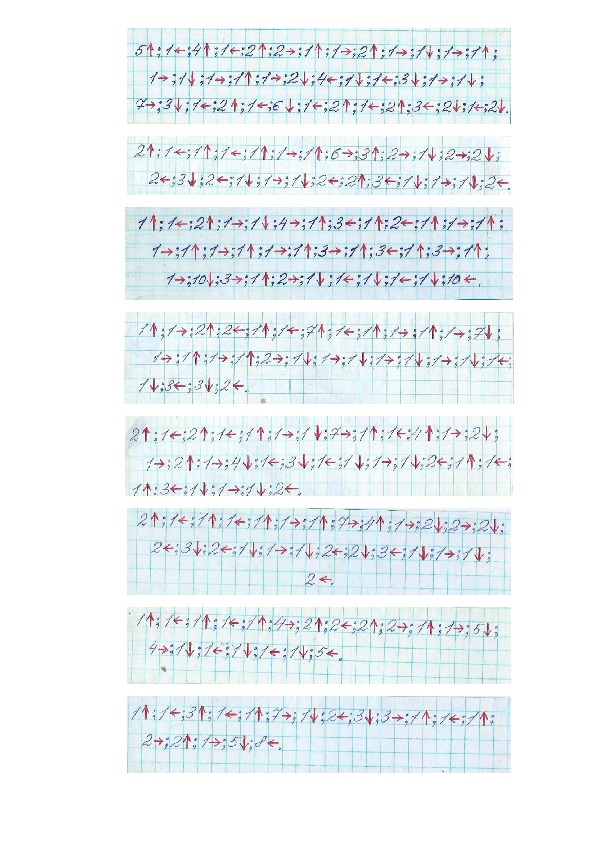 5↑; 1←; 4↑; 1←; 2↑; 2→; 1↑; 1→; 2↑; 1→; 1↓; 1→; 1↑;
1→; 1↓; 1→; 1↑; 1→; 2↓; 4←; 1↓; 1←; 3↓; 1→; 1↓;
7→; 3↓; 1←; 2↑; 1←; 6↓; 1←; 2↑; 1←; 2↑; 3←; 2↓; 1←; 2↓.
2↑; 1←; 1↑; 1←; 1↑; 1→; 1↑; 6→; 3↑; 2→; 1↓; 2→; 2↓;
2←; 3↓; 2←; 1↓; 1→; 1↓; 2←; 2↑; 3←; 1↓; 1→; 1↓; 2←.
1↑; 1←; 2↑; 1→; 1↓; 4→; 1↑; 3←; 1↑; 2←; 1↑; 1→; 1↑;
1→; 1↑; 1→; 1↑; 1→; 1↑; 3→; 1↑; 3←; 1↑; 3→; 1↑;
1→; 10↓; 3→; 1↑; 2→; 1↓; 1←; 1↓; 1←; 1↓; 10←.
1↑; 1→; 2↑; 2←; 1↑; 1←; 7↑; 1←; 1↑; 1→; 1↑; 1→; 7↓;
1→; 1↑; 1→; 1↑; 2→; 1↓; 1→; 1↓; 1→; 1↓; 1→; 1↓; 1←;
1↓; 3←; 3↓; 2←.
2↑; 1←; 2↑; 1←; 1↑; 1→; 1↓; 7→; 1↑; 1←; 4↑; 1→; 2↓;
1→; 2↑; 1→; 4↓; 1←; 3↓; 1←; 1↓; 1→; 1↓; 2←; 1↑; 1←;
1↑; 3←; 1↓; 1→; 1↓; 2←.
2↑; 1←; 1↑; 1←; 1↑; 1→; 1↑; 7→; 4↑; 1→; 2↓; 2→; 2↓;
2←; 3↓; 2←; 1↓; 1→; 1↓; 2←; 2↓; 3←; 1↓; 1→; 1↓;
2←.
1↑; 1←; 1↑; 1←; 1↑; 4→; 2↑; 2←; 2↑; 2→; 1↑; 1→; 5↓;
4→; 1↓; 1←; 1↓; 1←; 1↓; 5←.
1↑; 1←; 3↑; 1←; 1↑; 7→; 1↓; 2←; 3↓; 3→; 1↑; 1←; 1↑;
2→; 2↑; 1→; 5↓; 8←.